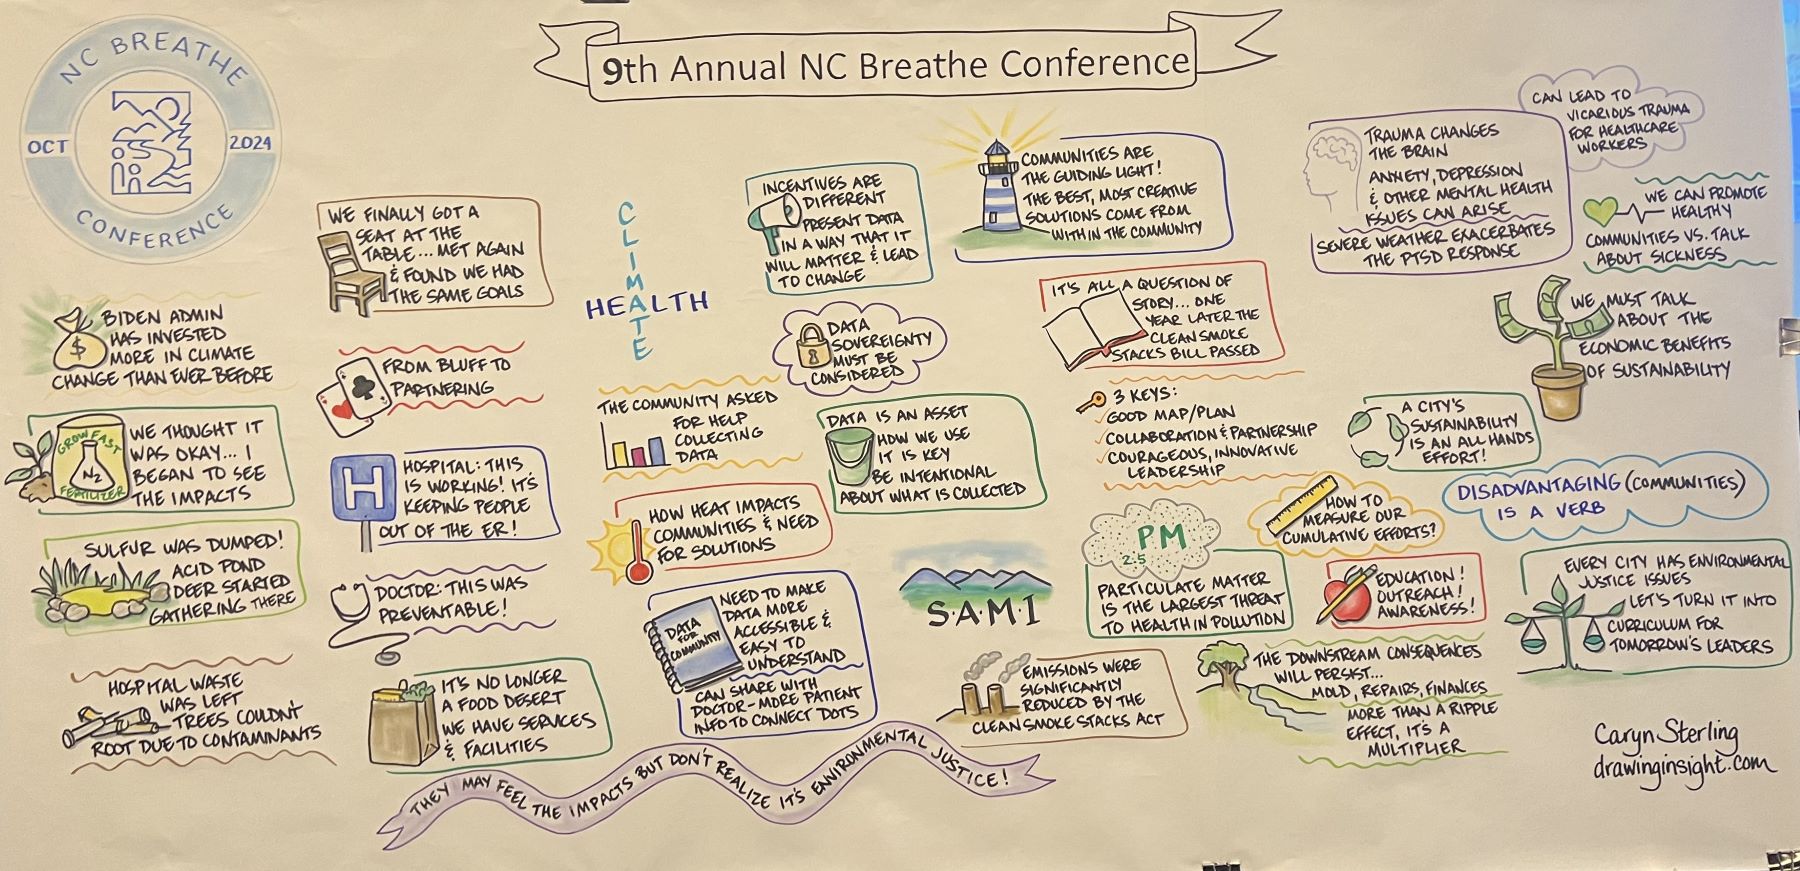 9th Annual NC Breathe Conference
NC BREATHE
OCT
2024
CONFERENCE
BIDEN ADMIN
HAS INVESTED
MORE IN CLIMATE
CHANGE THAN EVER BEFORE
$
GROW FAST
N2
FERTILIZER
WE THOUGHT IT
WAS OKAY... I
BEGAN TO SEE
THE IMPACTS
SULFUR WAS DUMPED!
ACID POND
DEER STARTED
GATHERING THERE
HOSPITAL WASTE
WAS LEFT
TREES COULDN'T
ROOT DUE TO CONTAMINANTS
WE FINALLY GOT A
SEAT AT THE
TABLE... MET AGAIN
& FOUND WE HAD
THE SAME GOALS
FROM BLUFF TO
PARTNERING
H
HOSPITAL: THIS
IS WORKING! IT'S
KEEPING PEOPLE
OUT OF THE ER!
DOCTOR: THIS WAS
PREVENTABLE!
IT'S NO LONGER
A FOOD DESERT
WE HAVE SERVICES
& FACILITIES
CLIMATE
HEALTH
THE COMMUNITY ASKED
FOR HELP
COLLECTING
DATA
HOW HEAT IMPACTS
COMMUNITIES & NEED
FOR SOLUTIONS
DATA
FOR
COMMUNITY
NEED TO MAKE
DATA MORE
ACCESSIBLE &
EASY TO
UNDERSTAND
CAN SHARE WITH
DOCTOR-MORE PATIENT
INFO TO CONNECT DOTS
THEY MAY FEEL THE IMPACTS BUT DON'T REALIZE IT'S ENVIRONMENTAL JUSTICE!
INCENTIVES ARE
DIFFERENT
PRESENT DATA
IN A WAY THAT IT
WILL MATTER & LEAD
TO CHANGE
DATA
SOVEREIGNTY
MUST BE
CONSIDERED
DATA IS AN ASSET
HOW WE USE
IT IS KEY
BE INTENTIONAL
ABOUT WHAT IS COLLECTED
S·A·M·I
EMISSIONS WERE
SIGNIFICANTLY
REDUCED BY THE
CLEAN SMOKE STACKS ACT
COMMUNITIES ARE
THE GUIDING LIGHT!
THE BEST, MOST CREATIVE
SOLUTIONS COME FROM
WITHIN THE COMMUNITY
IT'S ALL A QUESTION OF
STORY... ONE
YEAR LATER THE
CLEAN SMOKE
STACKS BILL PASSED
3 KEYS:
GOOD MAP/PLAN
COLLABORATION & PARTNERSHIP
COURAGEOUS, INNOVATIVE
LEADERSHIP
PM
2.5
PARTICULATE MATTER
IS THE LARGEST THREAT
TO HEALTH IN POLLUTION
HOW TO
MEASURE OUR
CUMULATIVE EFFORTS?
EDUCATION!
OUTREACH!
AWARENESS!
THE DOWNSTREAM CONSEQUENCES
WILL PERSIST...
MOLD, REPAIRS, FINANCES
MORE THAN A RIPPLE
EFFECT, IT'S A
MULTIPLIER
TRAUMA CHANGES
THE BRAIN
ANXIETY, DEPRESSION
& OTHER MENTAL HEALTH
ISSUES CAN ARISE
SEVERE WEATHER EXACERBATES
THE PTSD RESPONSE
CAN LEAD TO
VICARIOUS TRAUMA
FOR HEALTHCARE
WORKERS
WE CAN PROMOTE
HEALTHY
COMMUNITIES VS. TALK
ABOUT SICKNESS
WE MUST TALK
ABOUT THE
ECONOMIC BENEFITS
OF SUSTAINABILITY
A CITY'S
SUSTAINABILITY
IS AN ALL HANDS
EFFORT!
DISADVANTAGING (COMMUNITIES)
IS A VERB
EVERY CITY HAS ENVIRONMENTAL
JUSTICE ISSUES
LET'S TURN IT INTO
CURRICULUM FOR
TOMORROW'S LEADERS
Caryn Sterling
drawinginsight.com